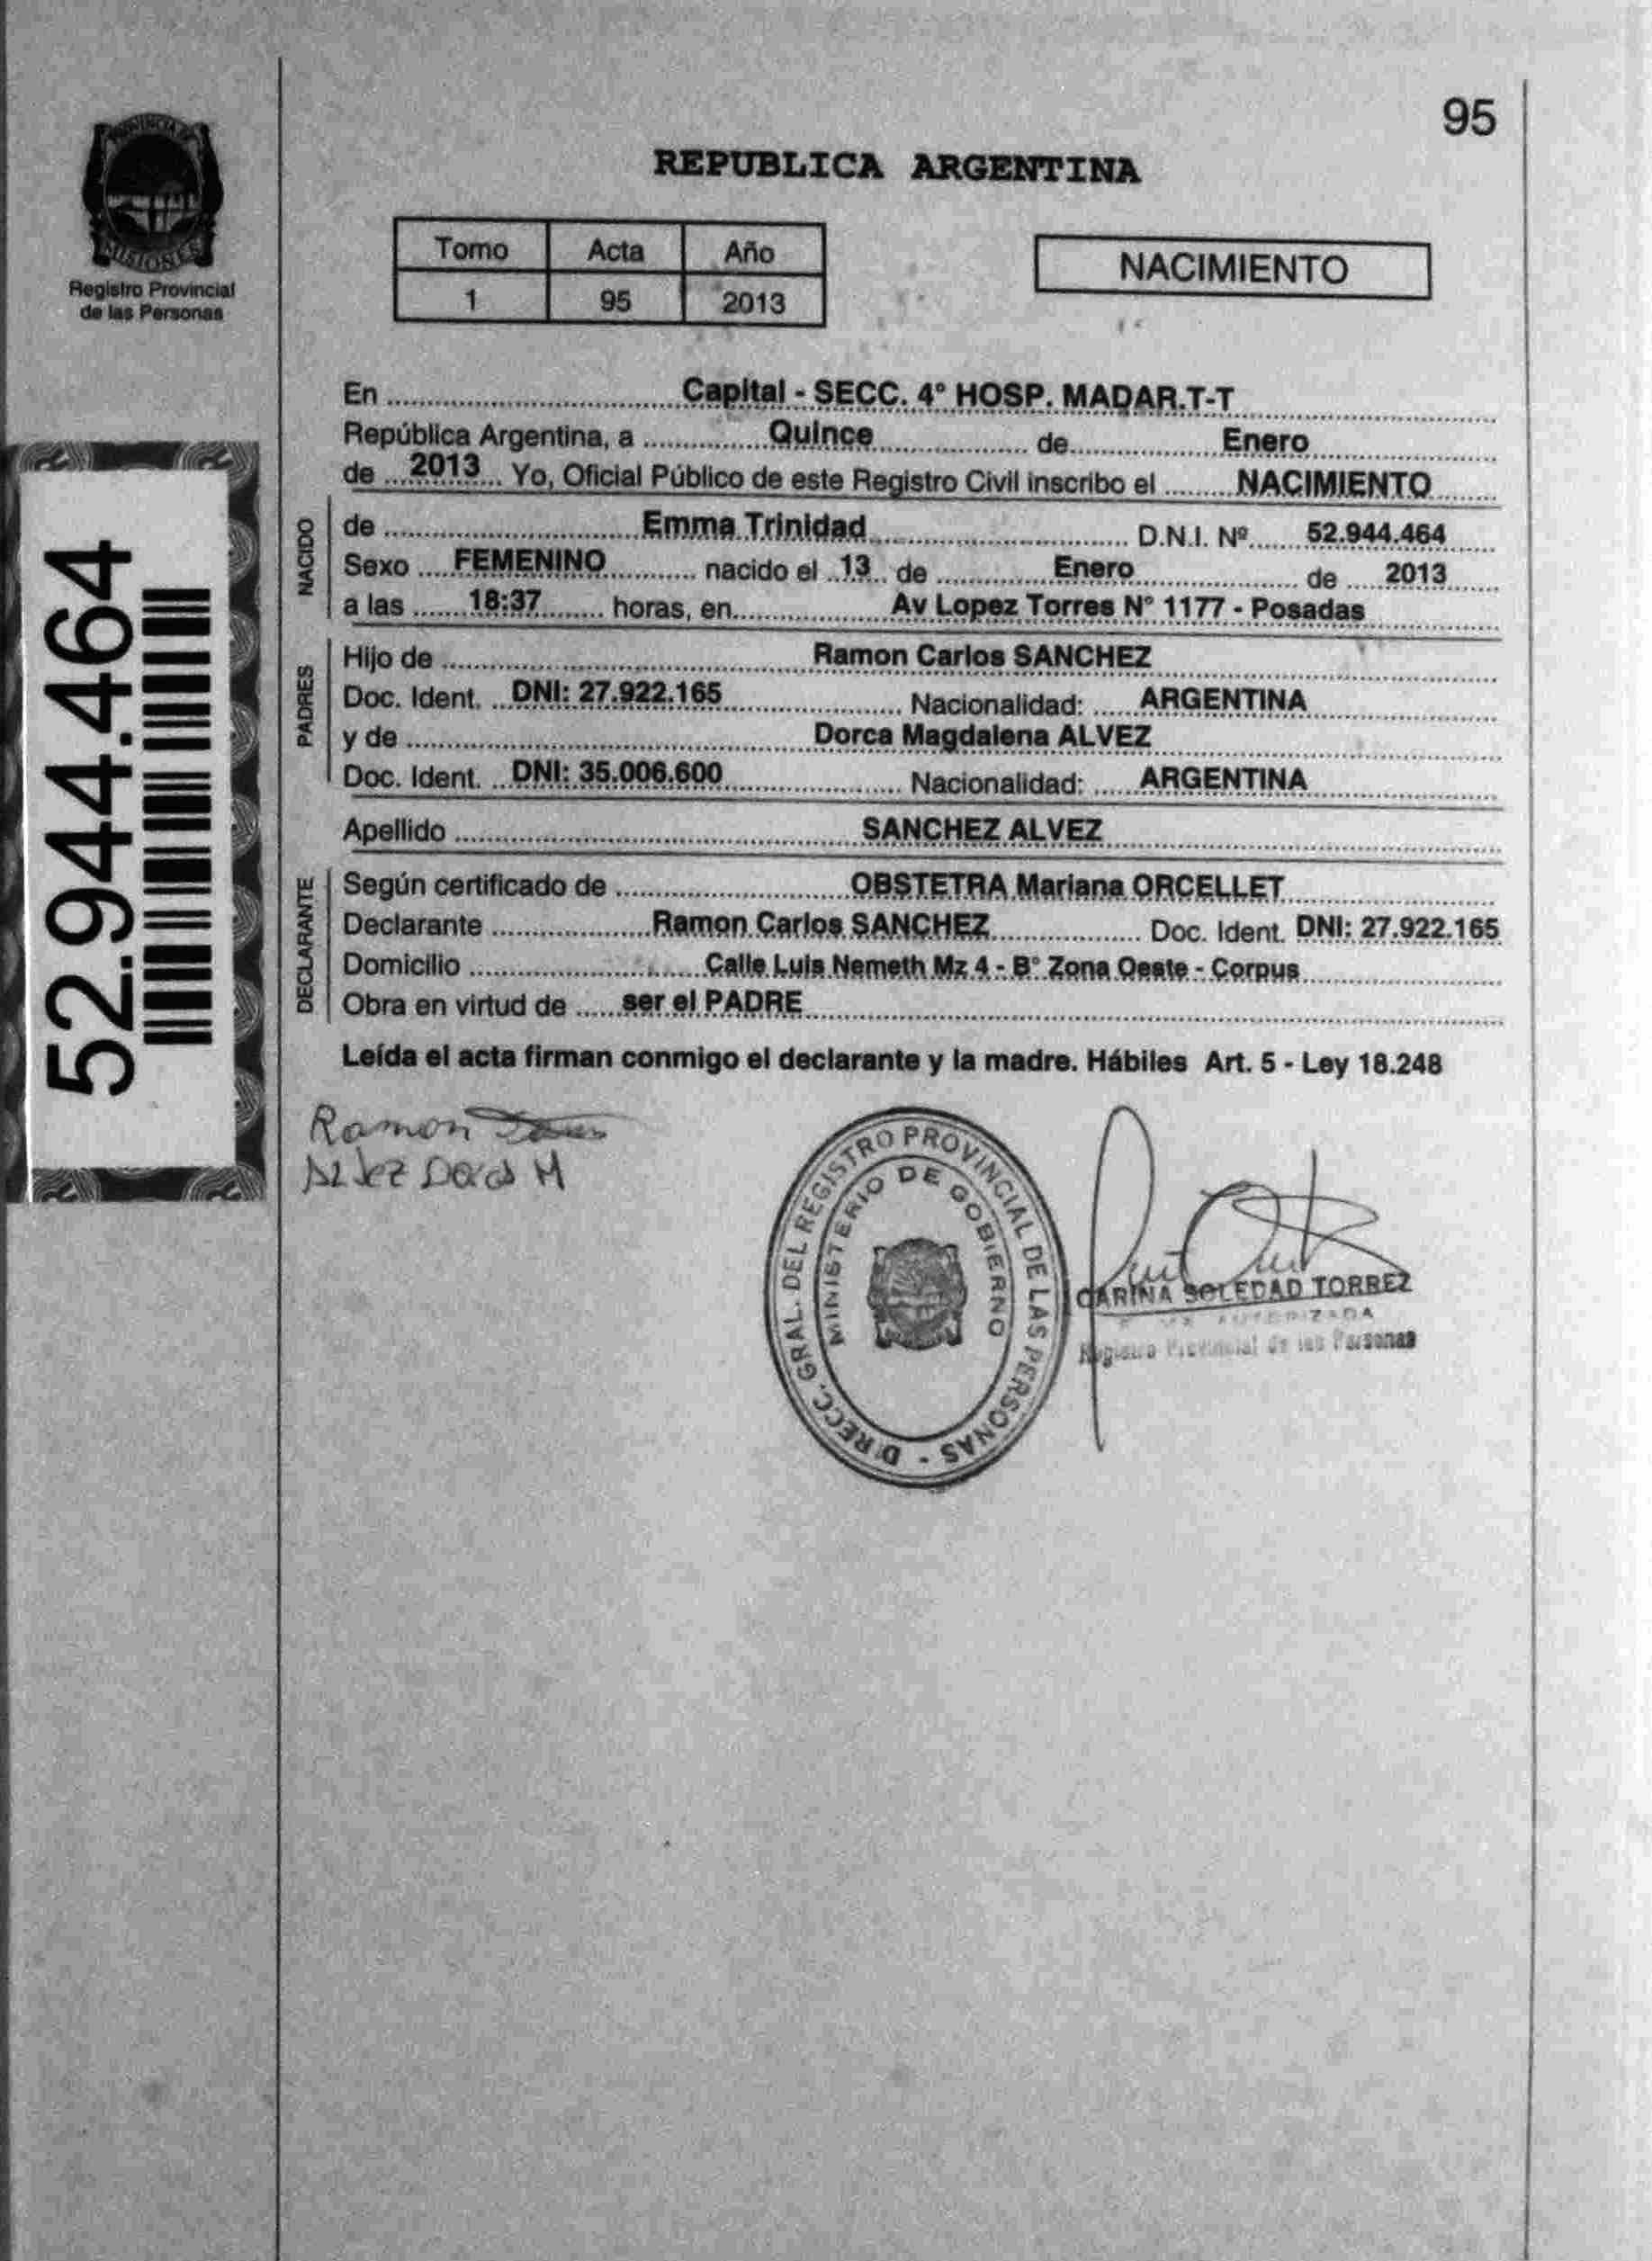 95
REPUBLICA ARGENTINA
PROVINCIA DE
MISIONES
Registro Provincial
de las Personas
Tomo Acta Año
1 95 2013
NACIMIENTO
En Capital - SECC. 4° HOSP. MADAR.T-T
República Argentina, a Quince de Enero
de 2013 Yo, Oficial Público de este Registro Civil inscribo el NACIMIENTO
NACIDO
de Emma Trinidad D.N.I. Nº 52.944.464
Sexo FEMENINO nacido el 13 de Enero de 2013
a las 18:37 horas, en Av Lopez Torres N° 1177 - Posadas
PADRES
Hijo de Ramon Carlos SANCHEZ
Doc. Ident. DNI: 27.922.165 Nacionalidad: ARGENTINA
y de Dorca Magdalena ALVEZ
Doc. Ident. DNI: 35.006.600 Nacionalidad: ARGENTINA
Apellido SANCHEZ ALVEZ
DECLARANTE
Según certificado de OBSTETRA Mariana ORCELLET
Declarante Ramon Carlos SANCHEZ Doc. Ident. DNI: 27.922.165
Domicilio Calle Luis Nemeth Mz 4 - B° Zona Oeste - Corpus
Obra en virtud de ser el PADRE
Leída el acta firman conmigo el declarante y la madre. Hábiles Art. 5 - Ley 18.248
52.944.464
Ramon
Alvez Dorca M
DIRECC. GRAL. DEL REGISTRO PROVINCIAL DE LAS PERSONAS -
MINISTERIO DE GOBIERNO
CARINA SOLEDAD TORREZ
AUTORIZADA
Registro Provincial de las Personas